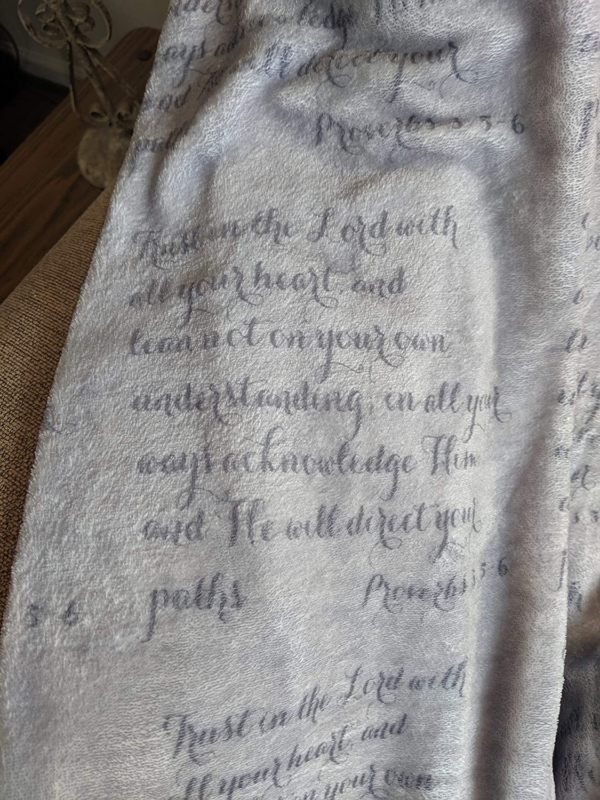 acknowledge
ways
will direct your
Proverbs 3 5-6
Trust in the Lord with
all your heart and
lean not on your own
understanding, in all your
ways acknowledge Him
and He will direct your
paths Proverbs 3 5-6
5 6
Trust in the Lord with
all your heart, and
on your own